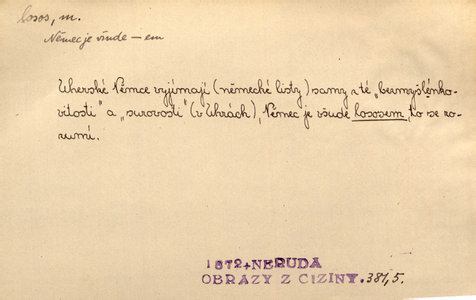 losos, m.
Němec je všude – em
Uherské Němce vyjímají (německé listy) samy z té „bezmyšlénko-
vitosti" a „surovosti" (v Uhrách), Němec je všude lososem, to se ro-
zumí.
1872+NERUDA
OBRAZY Z CIZINY. 381,5.